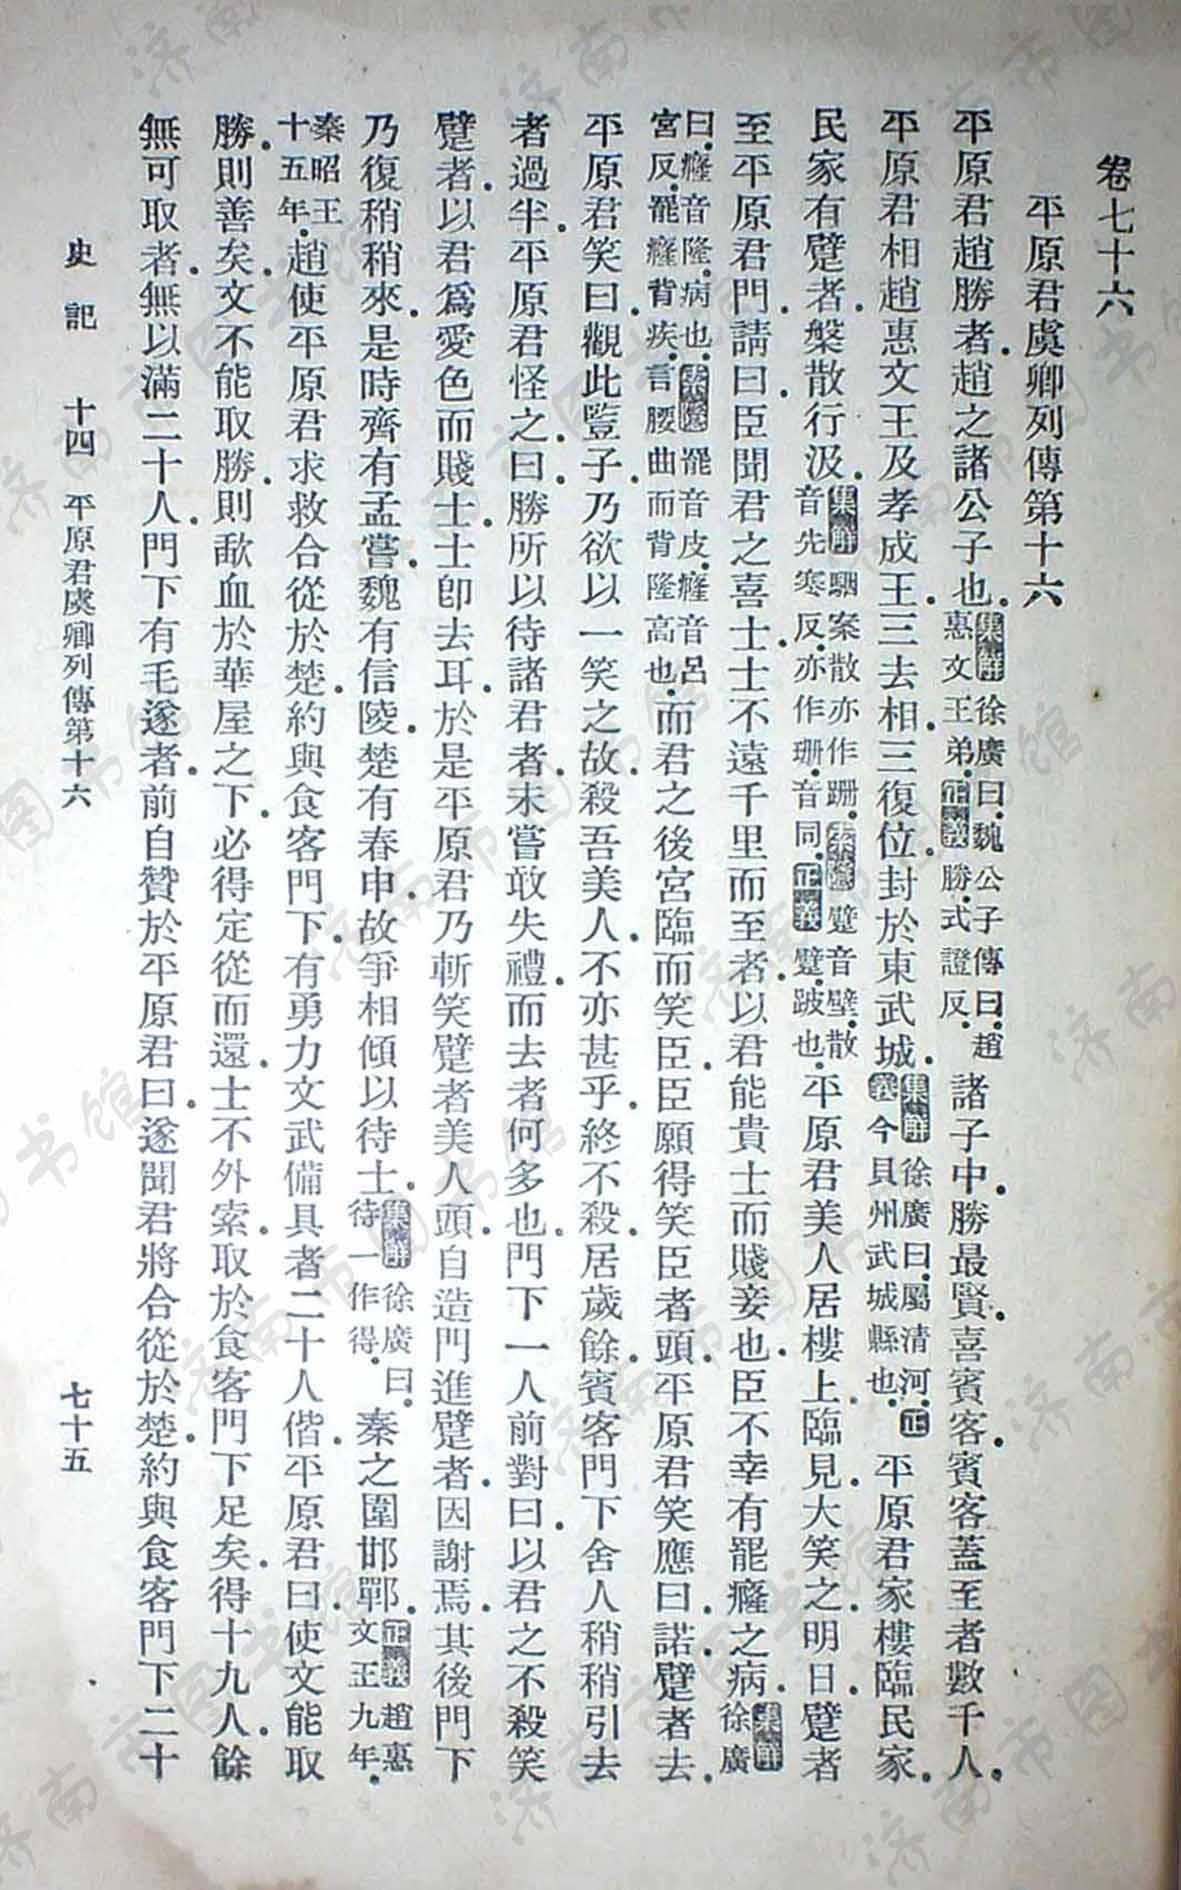 卷七十六
平原君虞卿列傳第十六
平原君趙勝者趙之諸公子也集解徐廣曰魏公子傳曰趙惠文王弟正義勝式證反諸子中勝最賢喜賓客賓客蓋至者數千人
平原君相趙惠文王及孝成王三去相三復位封於東武城集解徐廣曰屬清河正義今貝州武城縣也平原君家樓臨民家
民家有躄者槃散行汲集解駰案散亦作跚索隱躄音壁散音先寒反亦作珊音同正義躄跛也平原君美人居樓上臨見大笑之明日躄者
至平原君門請曰臣聞君之喜士士不遠千里而至者以君能貴士而賤妾也臣不幸有罷癃之病集解徐廣
曰癃音隆病也索隱罷音皮癃音呂宮反罷癃背疾言腰曲而背隆高也而君之後宮臨而笑臣臣願得笑臣者頭平原君笑應曰諾躄者去
平原君笑曰觀此豎子乃欲以一笑之故殺吾美人不亦甚乎終不殺居歲餘賓客門下舍人稍稍引去
者過半平原君怪之曰勝所以待諸君者未嘗敢失禮而去者何多也門下一人前對曰以君之不殺笑
躄者以君爲愛色而賤士士卽去耳於是平原君乃斬笑躄者美人頭自造門進躄者因謝焉其後門下
乃復稍稍來是時齊有孟嘗魏有信陵楚有春申故爭相傾以待士集解徐廣曰待一作得秦之圍邯鄲正義趙惠文王九年
秦昭王十五年趙使平原君求救合從於楚約與食客門下有勇力文武備具者二十人偕平原君曰使文能取
勝則善矣文不能取勝則歃血於華屋之下必得定從而還士不外索取於食客門下足矣得十九人餘
無可取者無以滿二十人門下有毛遂者前自贊於平原君曰遂聞君將合從於楚約與食客門下二十
史記 十四 平原君虞卿列傳第十六 七十五